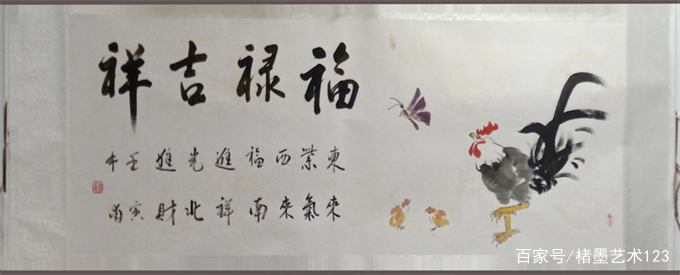 福禄吉祥
東來
紫氣
西來
福南
進祥
光北
進財
壬寅
百家号/楮墨艺术123